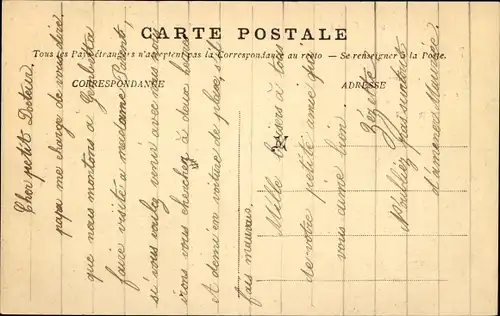 CARTE POSTALE
Tous les Pays étrangers n'acceptent pas la Correspondance au recto — Se renseigner à la Poste.
CORRESPONDANCE
ADRESSE
Cher petit Docteur.
papa me charge de vous dire
que nous montons à Gambetta
faire visite a madame Parent,
si vous voulez venir avec nous nous
irons vous chercher à deux heures
et demi en voiture de place, s'il
fais mauvais.
Mille baisers à tous
de votre petite amie qui
vous aime bien
Zézette
N'oubliez pas surtout
d'amener Maurice